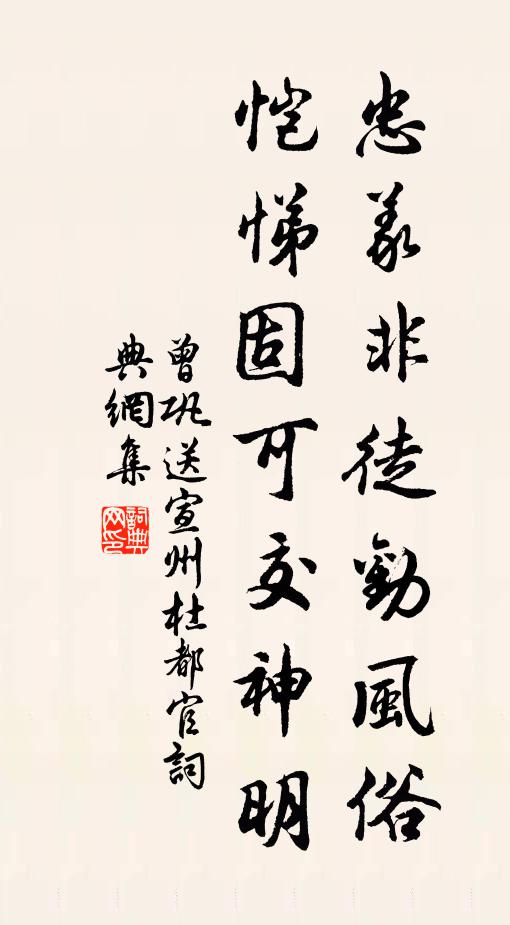 忠義非徒勸風俗
愷悌固可交神明
曾巩送宣州杜都官詞
典網集
詞典网印